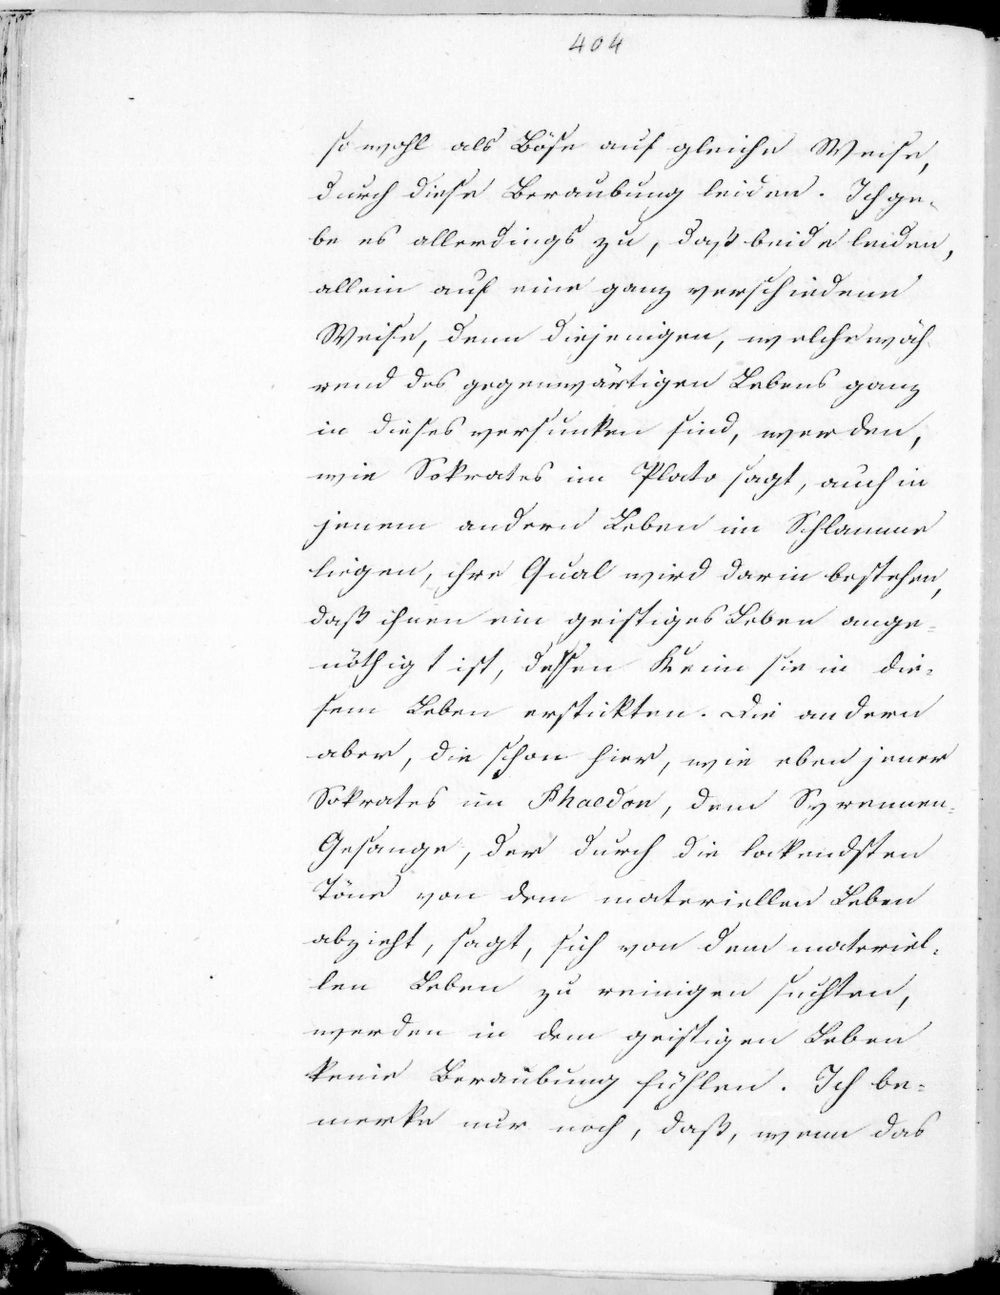 404
sowohl als Böse auf gleiche Weise,
durch diese Beraubung leiden. Ich ge-
be es allerdings zu, daß beide leiden,
allein auf eine ganz verschiedene
Weise, denn diejenigen, welche wäh
rend des gegenwärtigen Lebens ganz
in dieses versunken sind, werden,
wie Sokrates im Plato sagt, auch in
jenem andern Leben im Schlamme
liegen, ihre Qual wird darin bestehen,
daß ihnen ein geistiges Leben ange-
nöthigt ist, dessen Keim sie in die-
sem Leben erstickten. Die andern
aber, die schon hier, wie eben jener
Sokrates im Phaedon, dem Syrennen-
Gesange, der durch die lockendsten
Töne von dem materiellen Leben
abzieht, sagt, sich von dem materiel-
len Leben zu reinigen suchten,
werden in dem geistigen Leben
keine Beraubung fühlen. Ich be-
merke nur noch, daß, wenn das